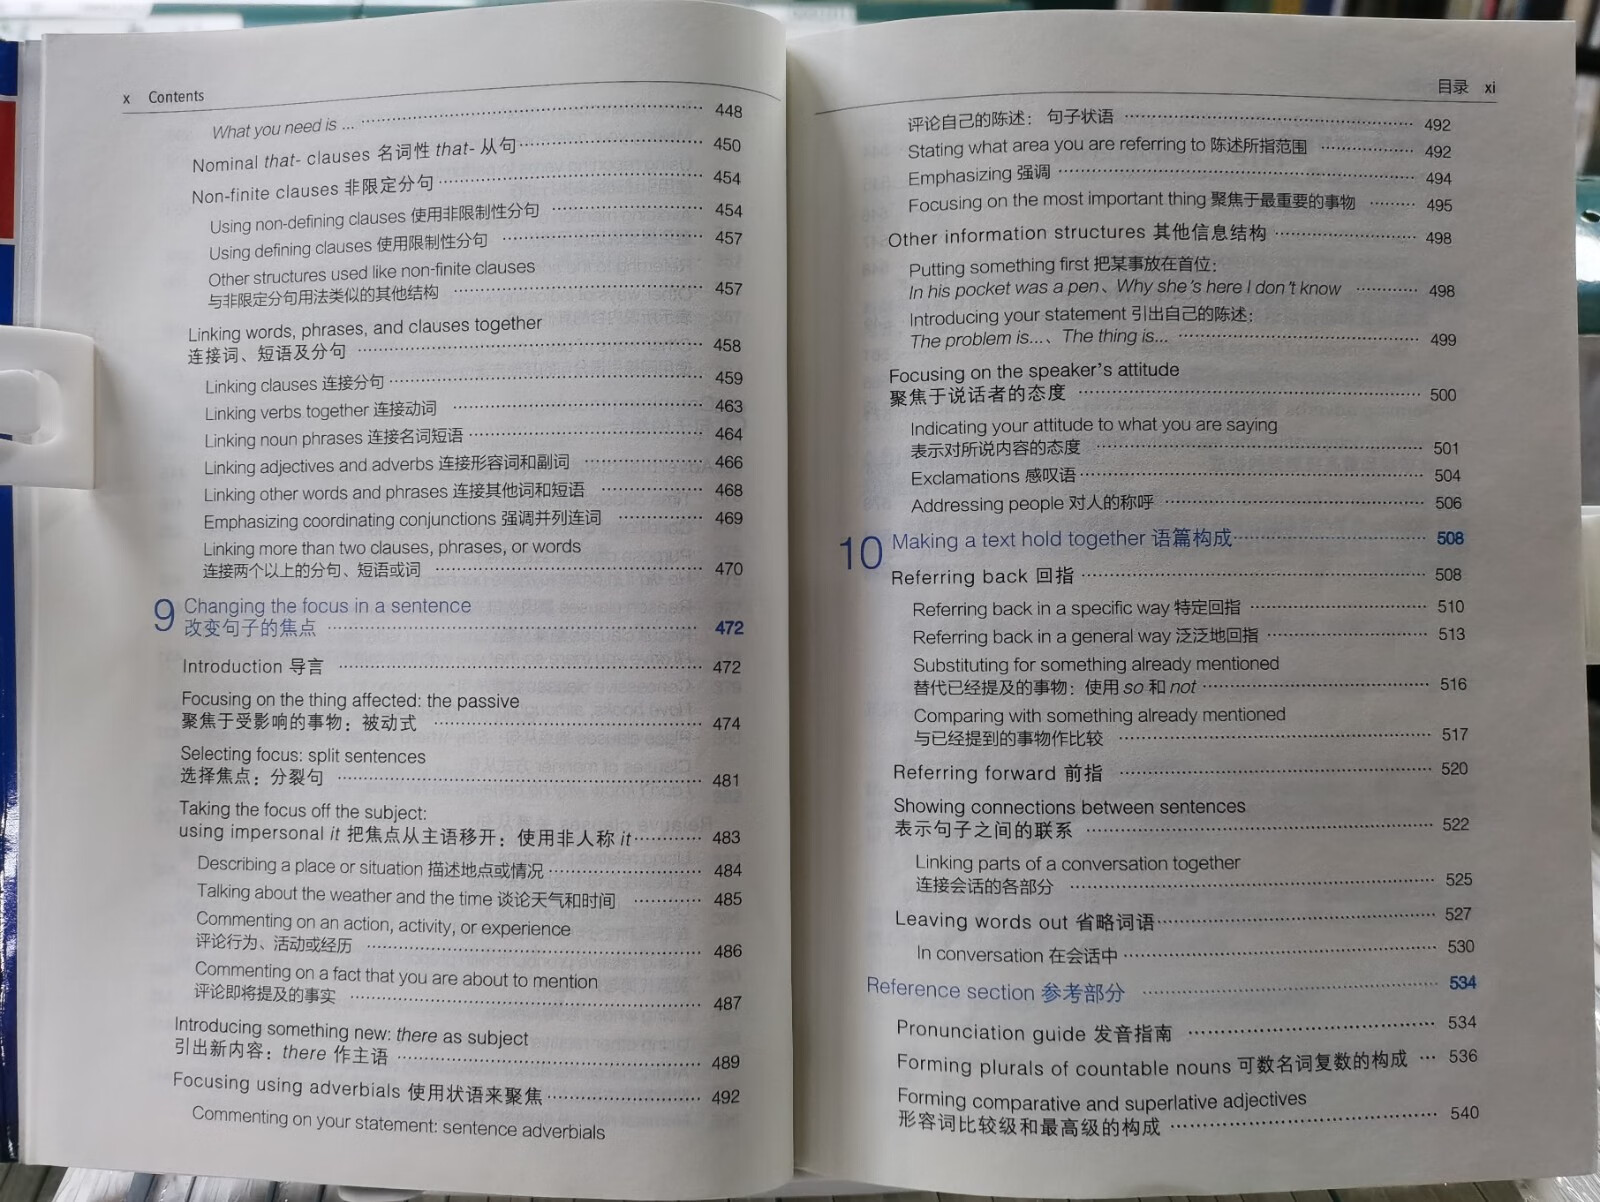 x Contents
What you need is ... 448
Nominal that- clauses 名词性 that- 从句 450
Non-finite clauses 非限定分句 454
Using non-defining clauses 使用非限制性分句 454
Using defining clauses 使用限制性分句 457
Other structures used like non-finite clauses
与非限定分句用法类似的其他结构 457
Linking words, phrases, and clauses together
连接词、短语及分句 458
Linking clauses 连接分句 459
Linking verbs together 连接动词 463
Linking noun phrases 连接名词短语 464
Linking adjectives and adverbs 连接形容词和副词 466
Linking other words and phrases 连接其他词和短语 468
Emphasizing coordinating conjunctions 强调并列连词 469
Linking more than two clauses, phrases, or words
连接两个以上的分句、短语或词 470
9 Changing the focus in a sentence
改变句子的焦点 472
Introduction 导言 472
Focusing on the thing affected: the passive
聚焦于受影响的事物：被动式 474
Selecting focus: split sentences
选择焦点：分裂句 481
Taking the focus off the subject:
using impersonal it 把焦点从主语移开：使用非人称 it 483
Describing a place or situation 描述地点或情况 484
Talking about the weather and the time 谈论天气和时间 485
Commenting on an action, activity, or experience
评论行为、活动或经历 486
Commenting on a fact that you are about to mention
评论即将提及的事实 487
Introducing something new: there as subject
引出新内容：there 作主语 489
Focusing using adverbials 使用状语来聚焦 492
Commenting on your statement: sentence adverbials
目录 xi
评论自己的陈述：句子状语 492
Stating what area you are referring to 陈述所指范围 492
Emphasizing 强调 494
Focusing on the most important thing 聚焦于最重要的事物 495
Other information structures 其他信息结构 498
Putting something first 把某事放在首位：
In his pocket was a pen、Why she's here I don't know 498
Introducing your statement 引出自己的陈述：
The problem is...、The thing is... 499
Focusing on the speaker's attitude
聚焦于说话者的态度 500
Indicating your attitude to what you are saying
表示对所说内容的态度 501
Exclamations 感叹语 504
Addressing people 对人的称呼 506
10 Making a text hold together 语篇构成 508
Referring back 回指 508
Referring back in a specific way 特定回指 510
Referring back in a general way 泛泛地回指 513
Substituting for something already mentioned
替代已经提及的事物：使用 so 和 not 516
Comparing with something already mentioned
与已经提到的事物作比较 517
Referring forward 前指 520
Showing connections between sentences
表示句子之间的联系 522
Linking parts of a conversation together
连接会话的各部分 525
Leaving words out 省略词语 527
In conversation 在会话中 530
Reference section 参考部分 534
Pronunciation guide 发音指南 534
Forming plurals of countable nouns 可数名词复数的构成 536
Forming comparative and superlative adjectives
形容词比较级和最高级的构成 540